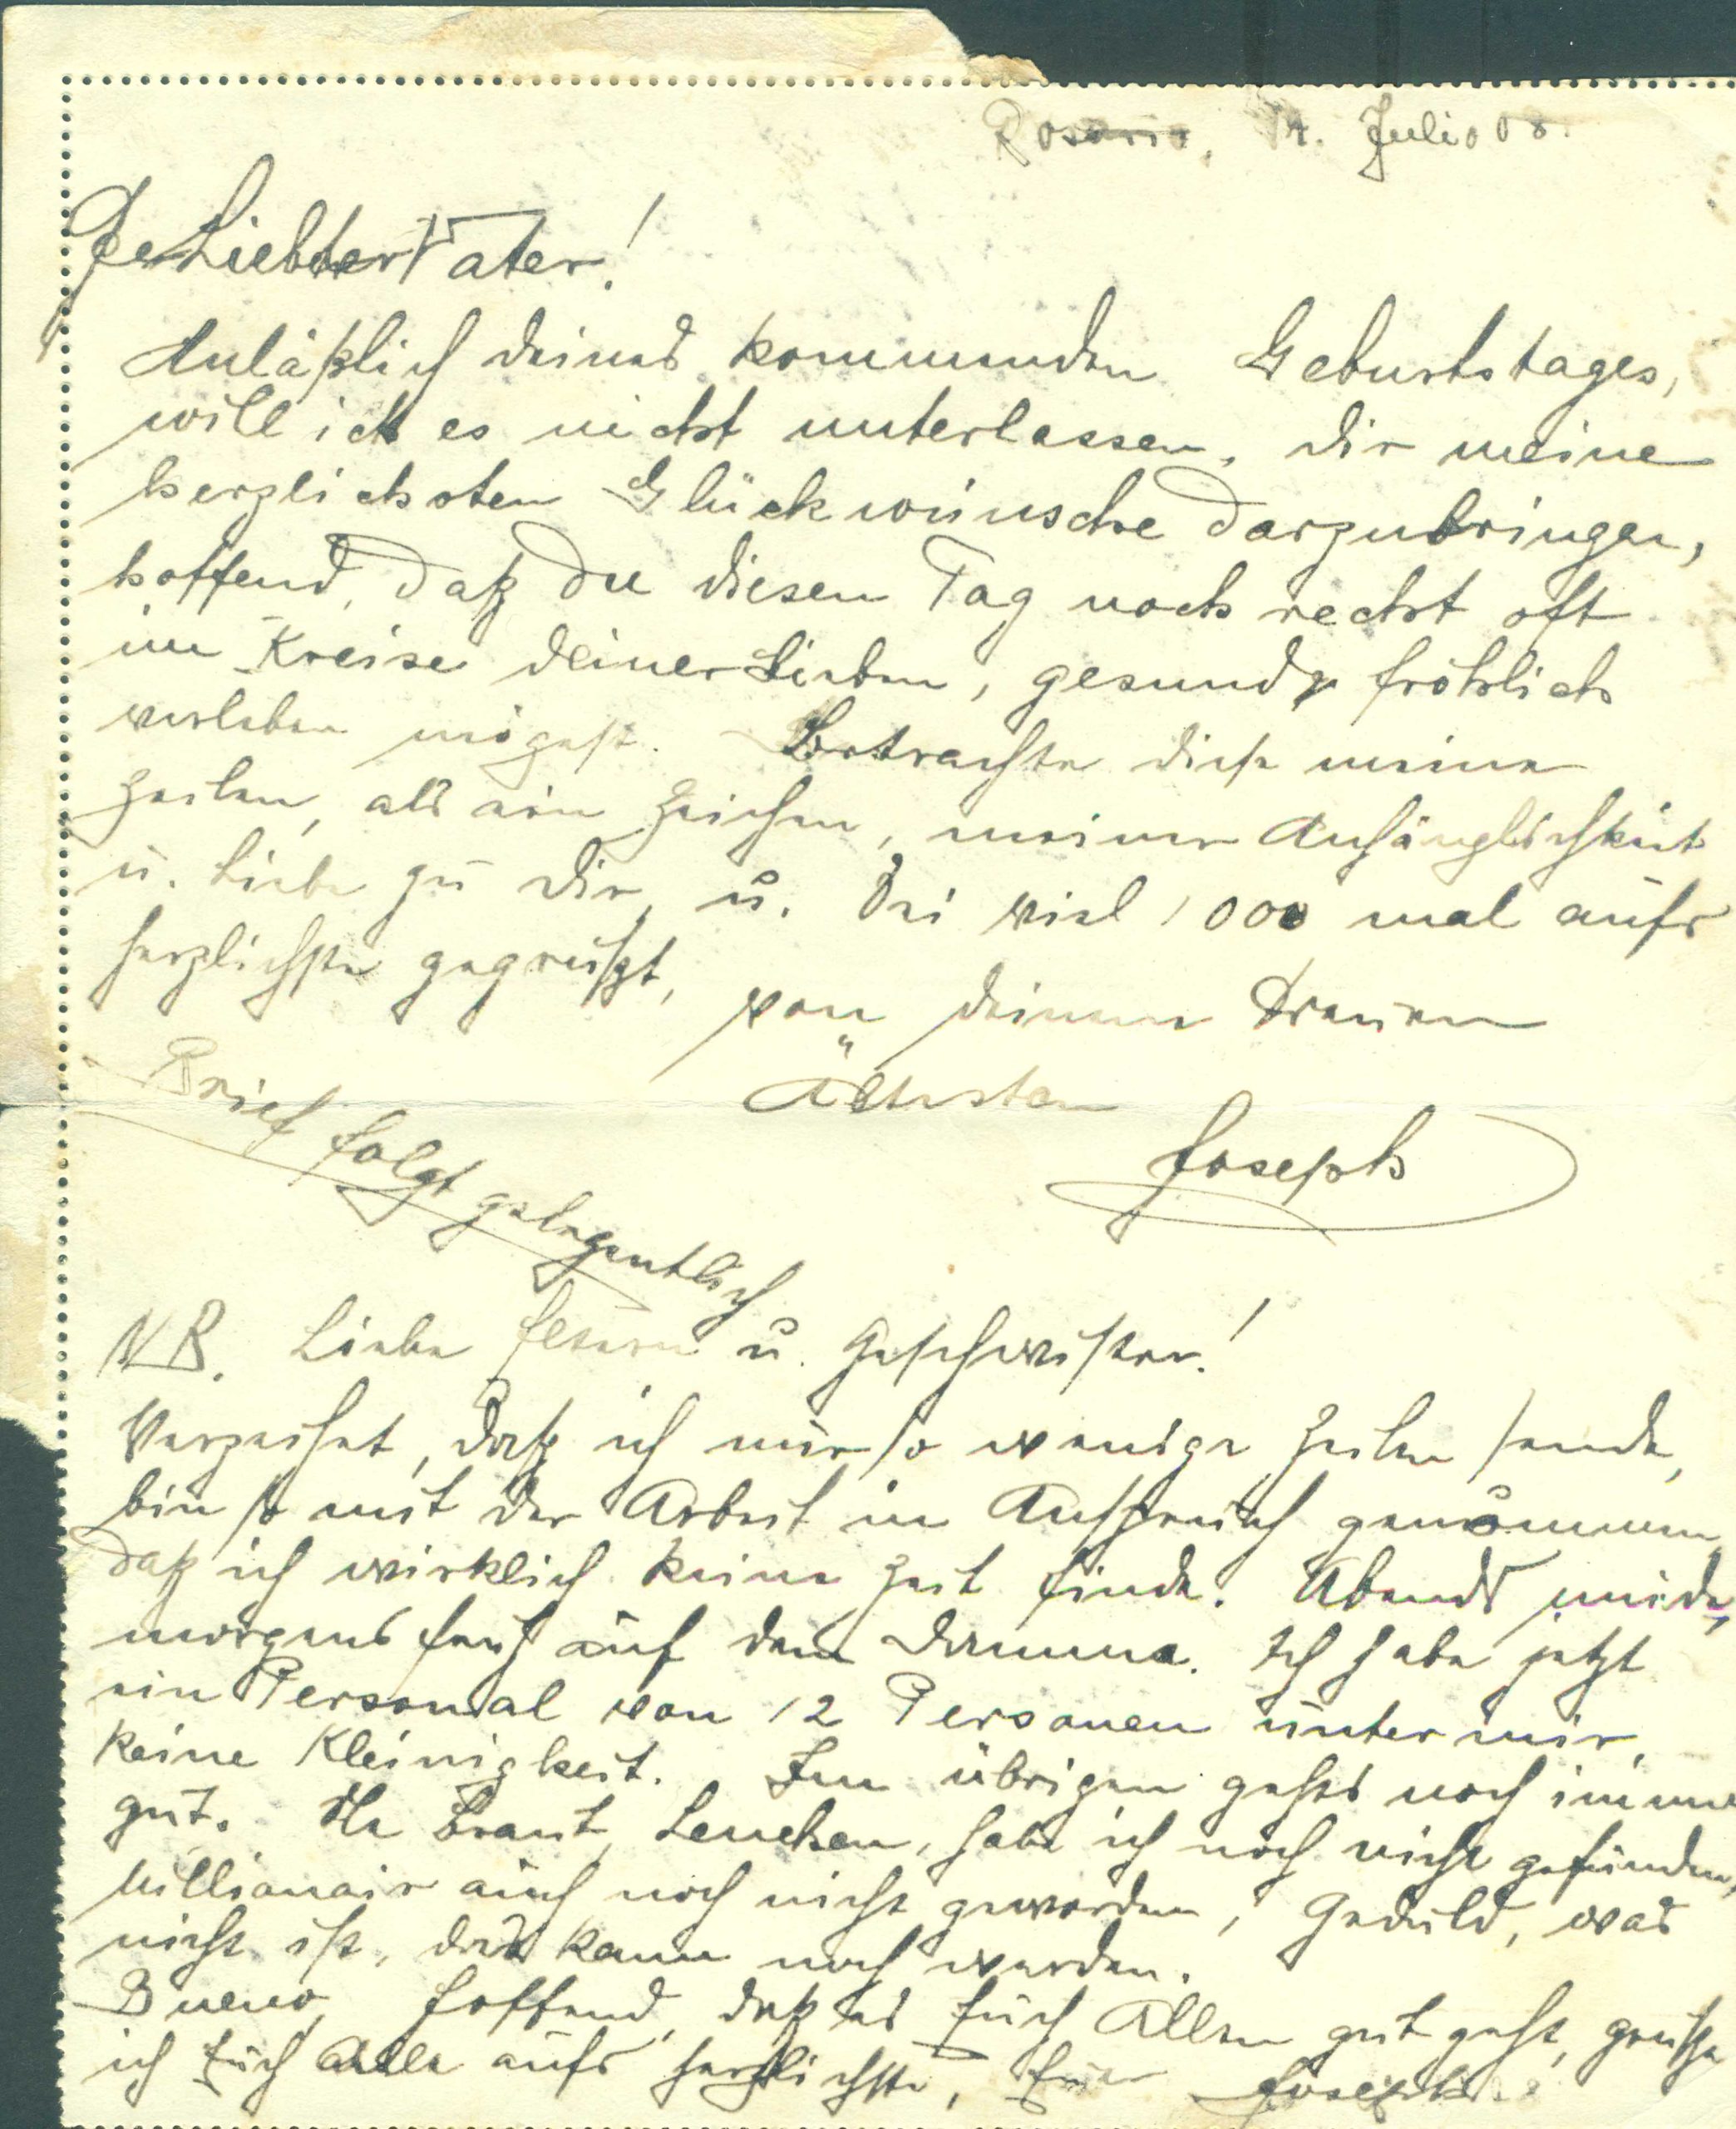 Rosario, 14. Juli 008.
Geliebter Vater!
Anläßlich deines kommenden Geburtstages,
will ich es nicht unterlassen, dir meine
herzlichsten Glückwünsche darzubringen,
hoffend, daß du diesen Tag noch recht oft
im Kreise deiner Lieben, gesund u fröhlich
verleben mögest. Betrachte diese meine
Zeilen, als ein Zeichen, meiner Anhänglichkeit
u. Liebe zu dir, u. sei viel 1000 mal aufs
herzlichste gegrüßt, von deinem treuen
Ältesten
Joseph
Brief folgt gelegentlich
NB. Liebe Eltern u. Geschwister!
Verzeihet, daß ich nur so wenige Zeilen sende,
bin so mit der Arbeit in Anspruch genommen,
daß ich wirklich keine Zeit finde. Abends müde,
morgens früh auf dem Damme. Ich habe jetzt
ein Personal von 12 Personen unter mir,
keine Kleinigkeit. Im übrigen gehts noch immer
gut. Die Braut, Lenchen, habe ich noch nicht gefunden,
Millionair auch noch nicht geworden, Geduld, was
nicht ist, das kann noch werden.
Bueno, hoffend, daß es Euch Allen gut geht, grüße
ich Euch Alle aufs herzlichste, Euer Joseph.